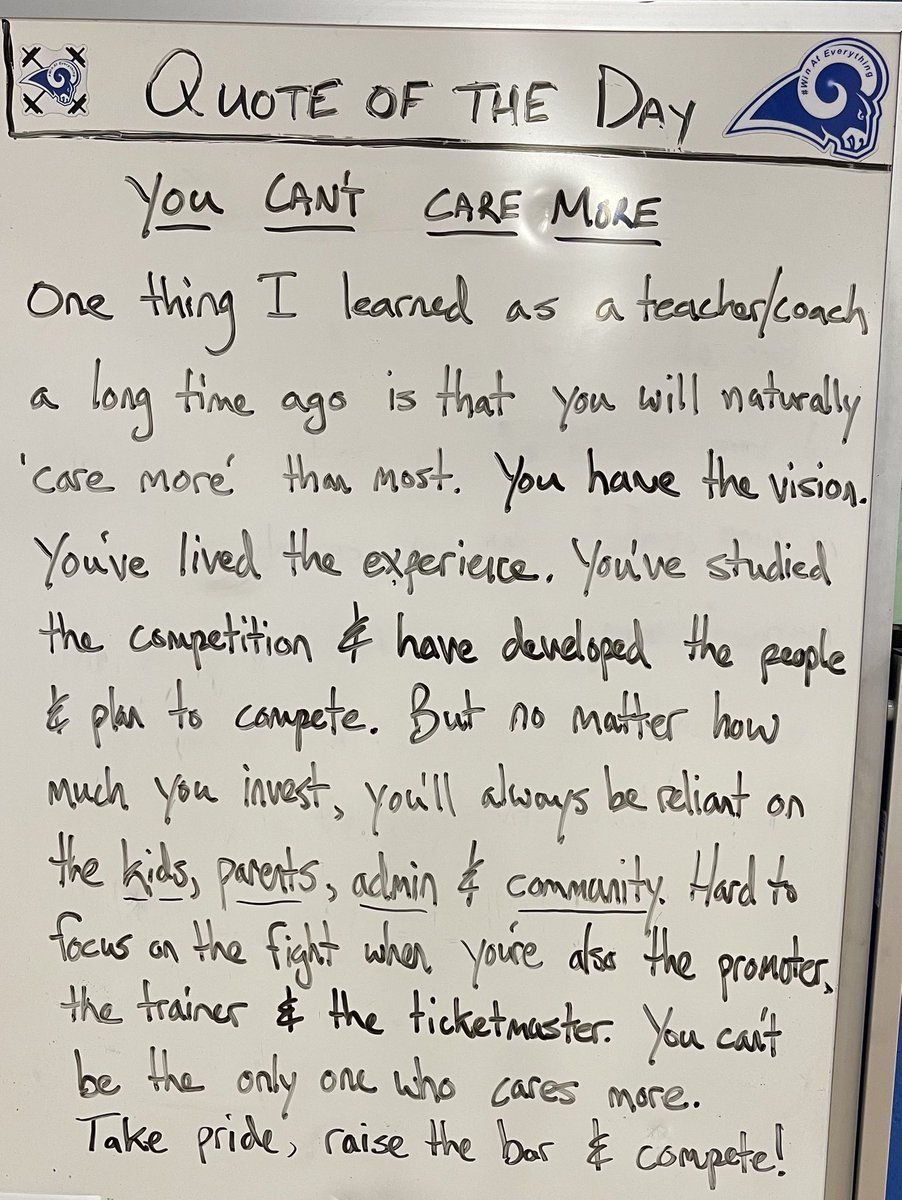 QUOTE OF THE DAY
#Win At Everything
YOU CAN'T CARE MORE
One thing I learned as a teacher/coach
a long time ago is that you will naturally
'care more' than most. You have the vision.
You've lived the experience. You've studied
the competition & have developed the people
& plan to compete. But no matter how
much you invest, you'll always be reliant on
the kids, parents, admin & community. Hard to
focus on the fight when you're also the promoter,
the trainer & the ticketmaster. You can't
be the only one who cares more.
Take pride, raise the bar & compete!